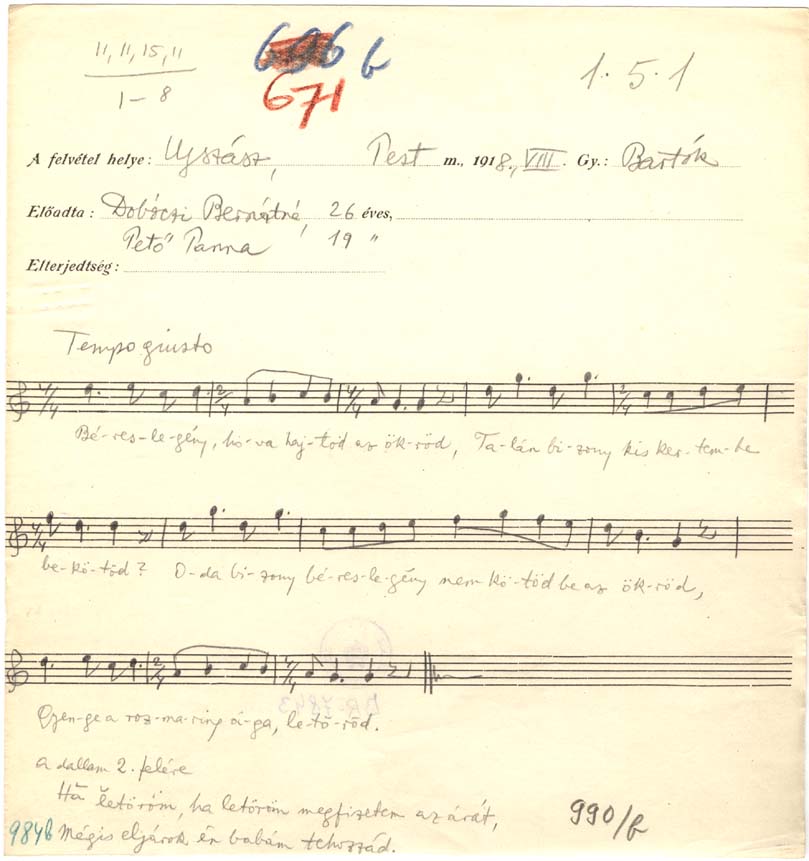 11, 11, 15, 11
1–8
671
b
1. 5. 1
A felvétel helye: Ujszász, Pest m., 1918., VIII. Gy.: Bartók
Előadta: Dobóczi Bernátné, 26 éves,
Pető Panna 19 "
Elterjedtség:
Tempo giusto
4/4 2/4 4/4 2/4
Bé-res-le-gény, ho-va haj-tod az ök-röd, Ta-lán bi-zony kis ker-tem-be
4/4
be-kö-töd? O-da bi-zony bé-res-le-gény nem kö-töd be az ök-röd,
2/4 4/4
Gyen-ge a roz-ma-ring á-ga, le-tö-röd.
a dallam 2. felére
Ha letöröm, ha letöröm megfizetem az árát,
990/b
984b Mégis eljárok én babám tehozzád.
BR-7843